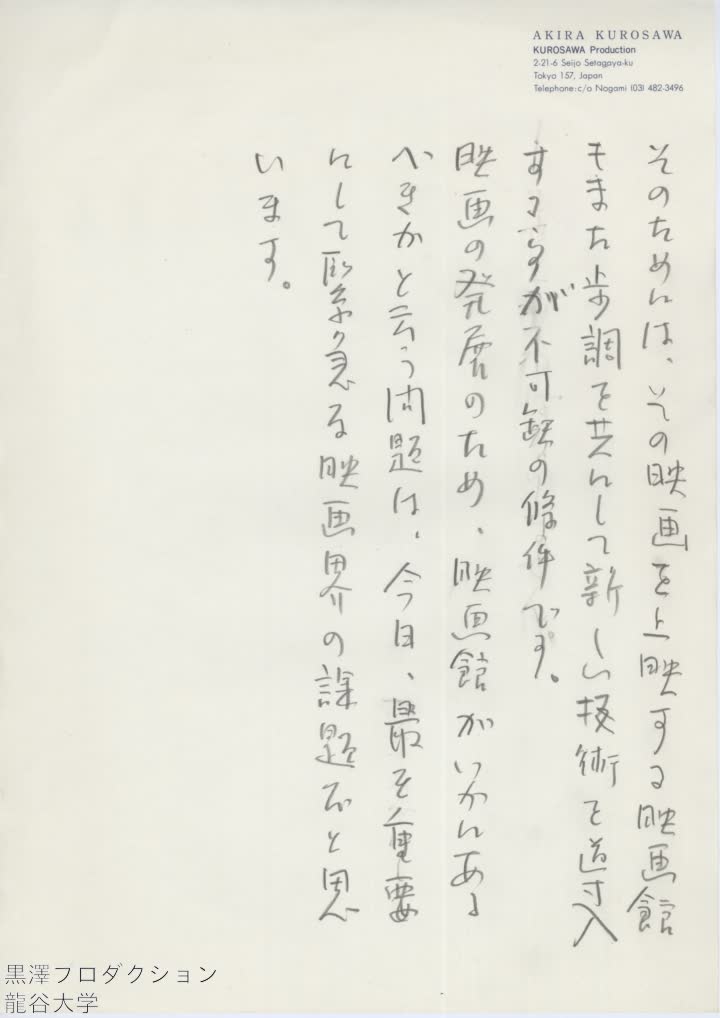 AKIRA KUROSAWA
KUROSAWA Production
2-21-6 Seijo Setagaya-ku
Tokyo 157, Japan
Telephone:c/o Nogami (03) 482-3496
そのためには、その映画を上映する映画館
もまた歩調を共にして新しい技術を導入
する事が不可缺の條件です。
映画の発展のため、映画館がいかにある
べきかと云う問題は、今日、最も重要
にして緊急な映画界の課題だと思
います。
黒澤フロダクション
龍谷大学